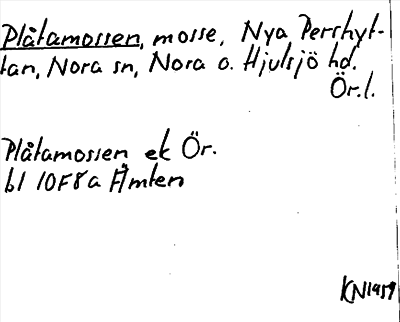 Plåtamossen, mosse, Nya Pershyt-
tan, Nora sn, Nora o. Hjulsjö hd.
Ör.l.
Plåtamossen ek Ör.
bl 10F8a Åmten
KN1959